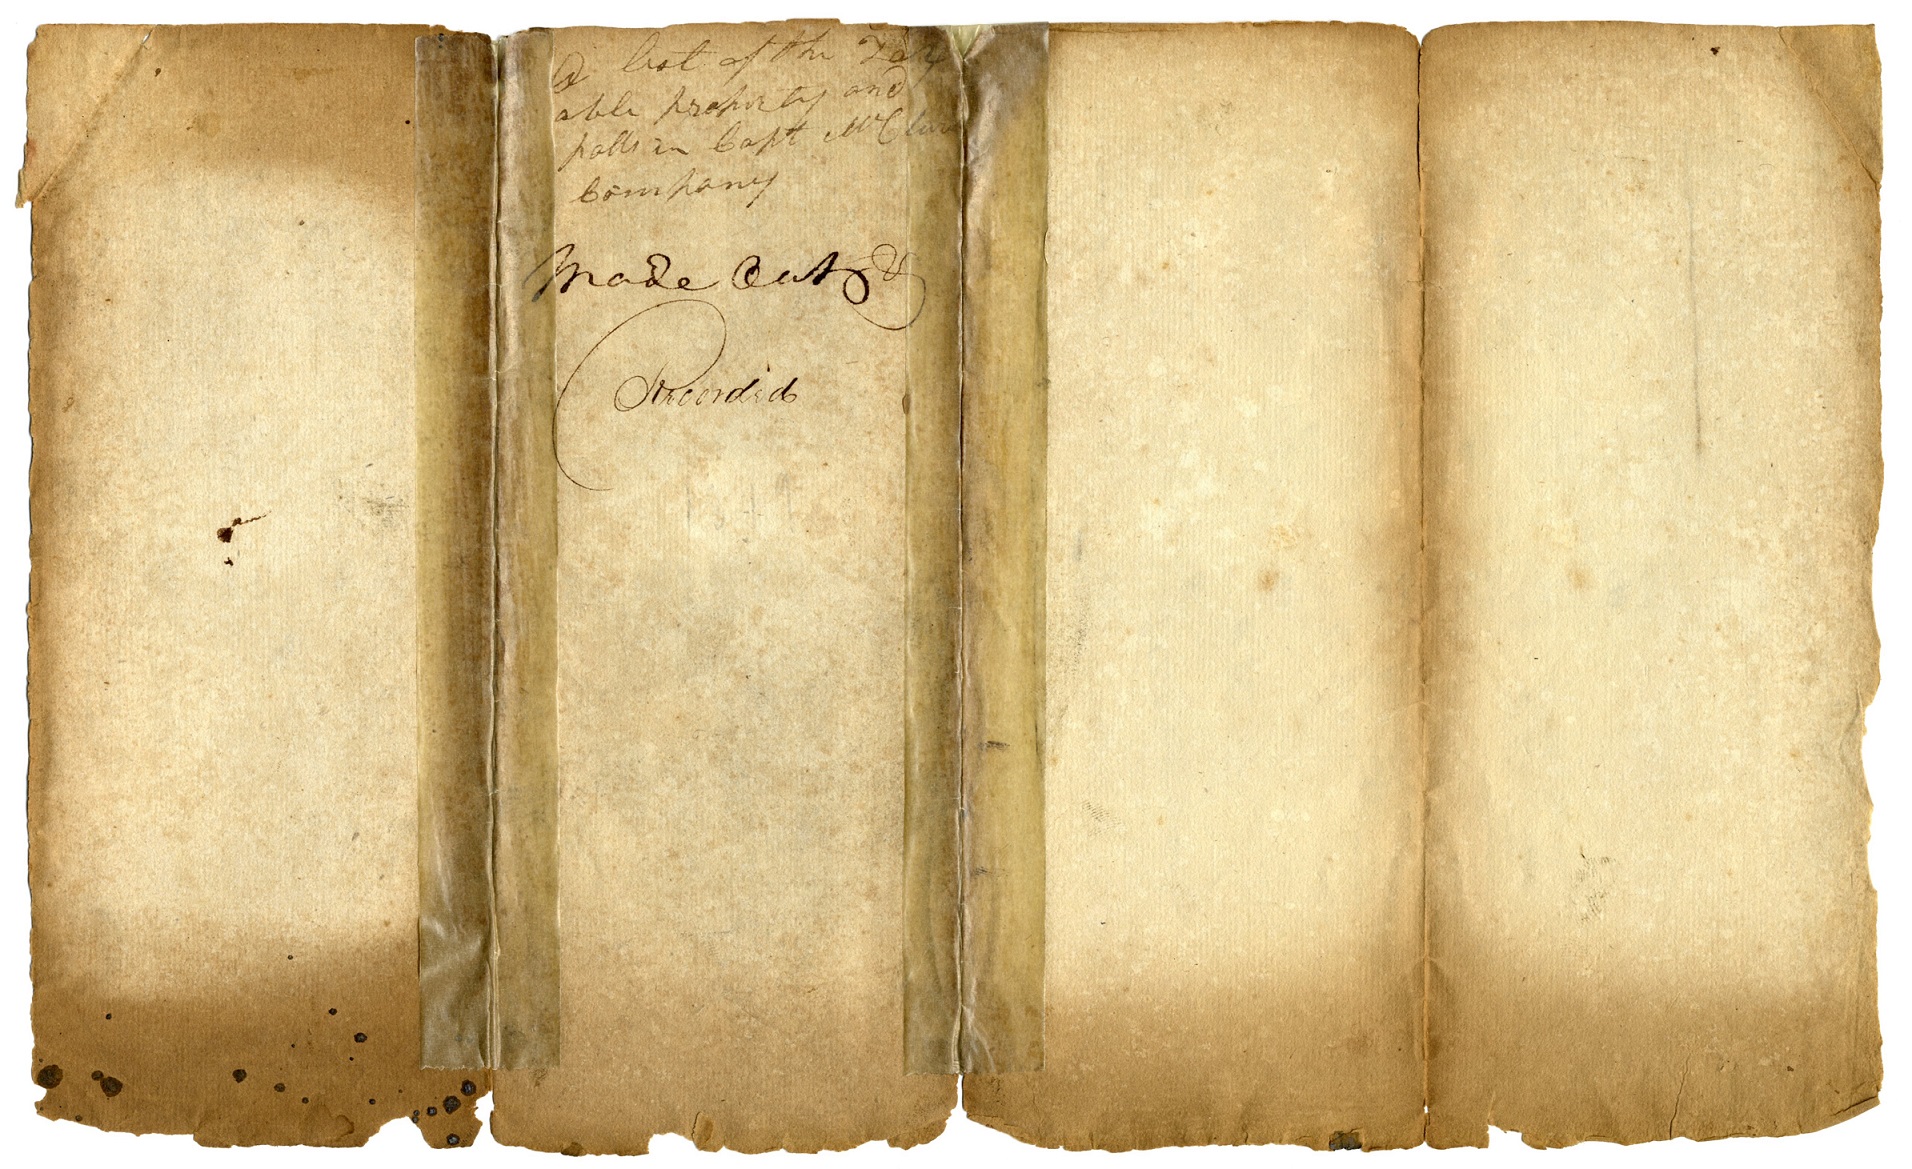 A list of the Tax
able property and
polls in Capt McClure
Company
Made Out &
Recorded